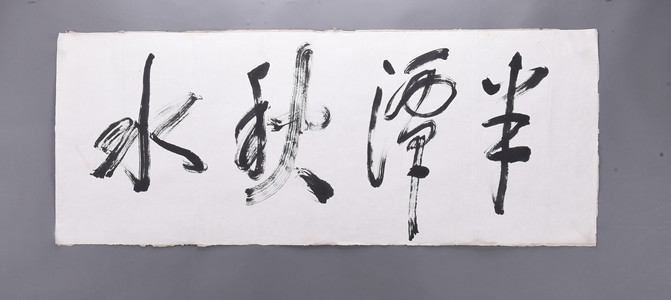 半潭秋水